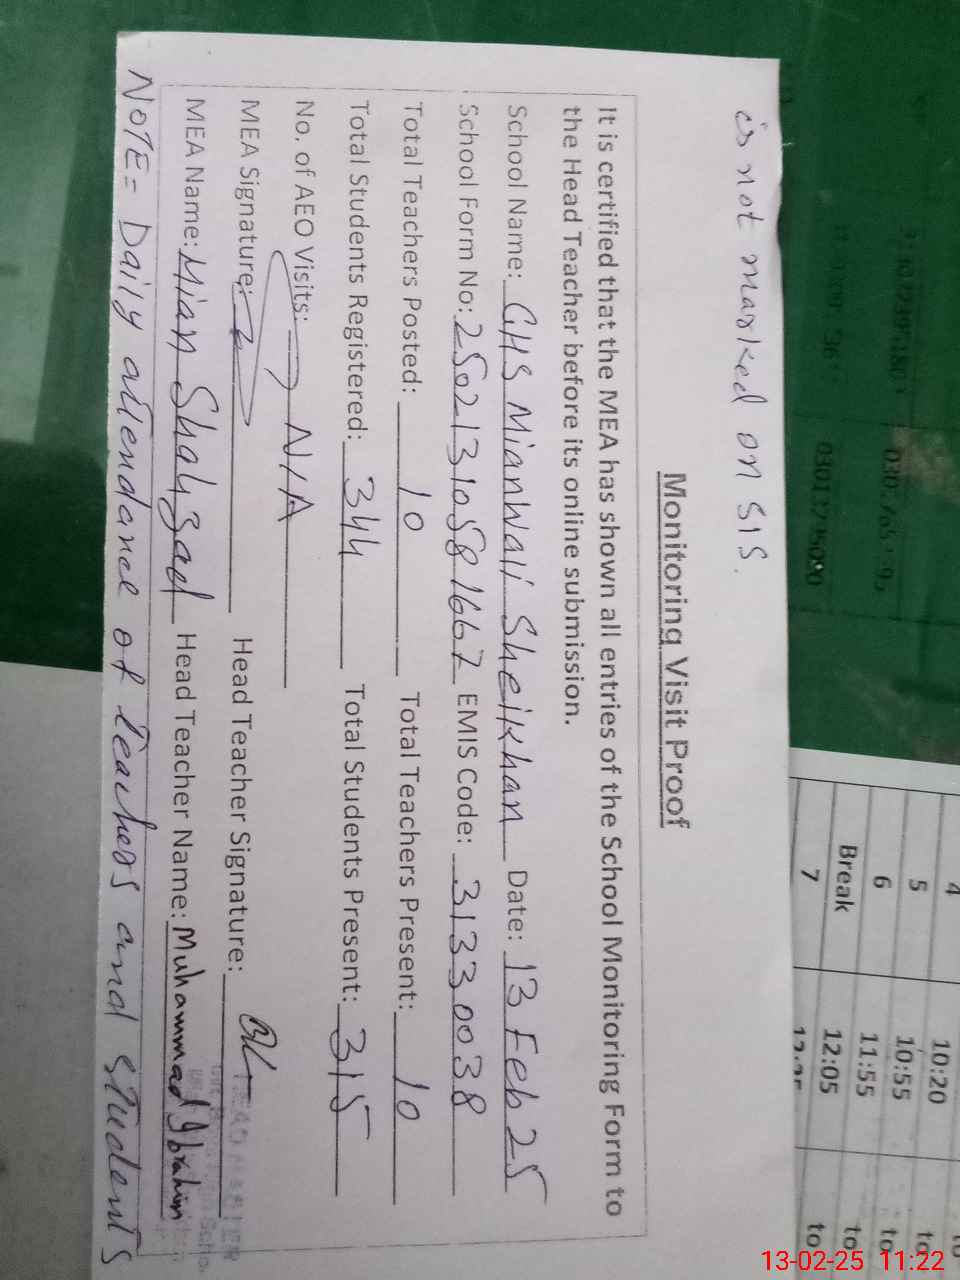 is not marked on SIS.
Monitoring Visit Proof
It is certified that the MEA has shown all entries of the School Monitoring Form to
the Head Teacher before its online submission.
School Name: GHS Mianwali Sheikhan Date: 13 Feb 25
School Form No: 25021310581667 EMIS Code: 31330038
Total Teachers Posted: 10 Total Teachers Present: 10
Total Students Registered: 344 Total Students Present: 315
No. of AEO Visits: N/A
MEA Signature: Head Teacher Signature:
MEA Name: Mian Shahzad Head Teacher Name: Muhammad Ibrahim
HEAD MASTER
NOTE = Daily attendance of teachers and students
4 10:20 to
5 10:55 to
6 11:55 to
Break 12:05 to
7 to
13-02-25 11:22